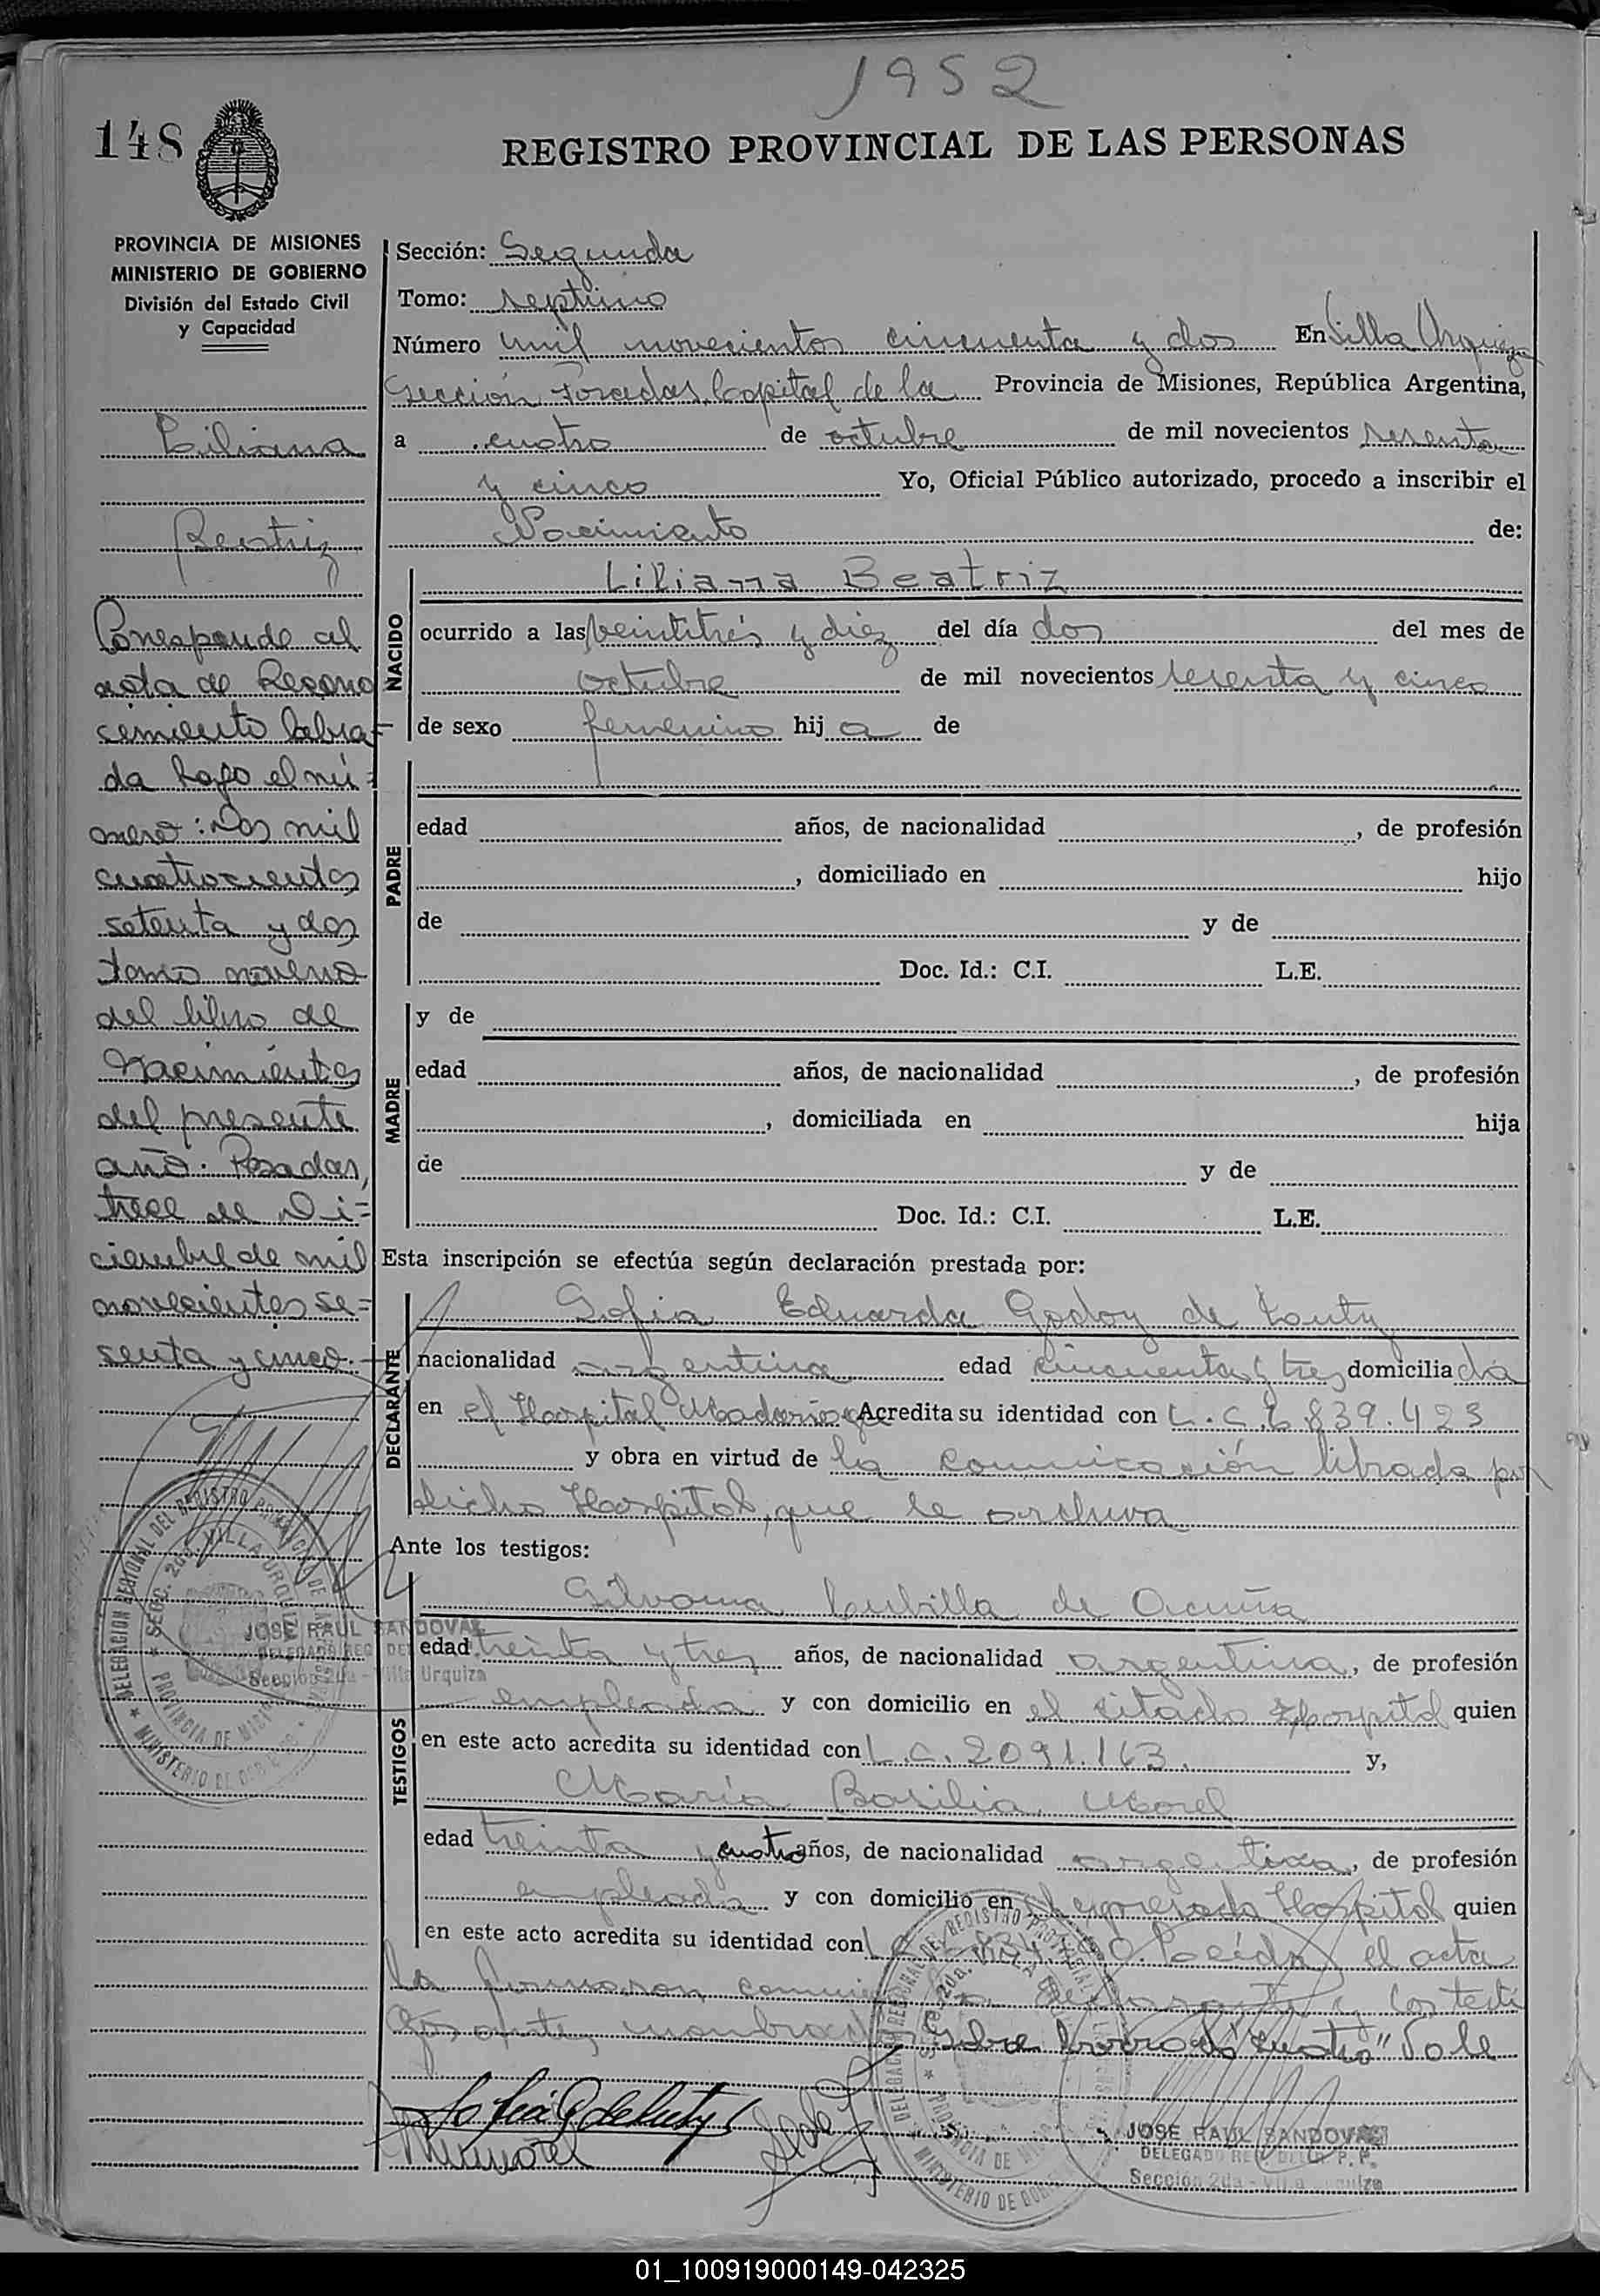 1952
148
REGISTRO PROVINCIAL DE LAS PERSONAS
PROVINCIA DE MISIONES
MINISTERIO DE GOBIERNO
División del Estado Civil
y Capacidad
Liliana
Beatriz
Corresponde al
acta de Recono
cimiento labra-
da bajo el nú=
mero: Dos mil
cuatrocientos
setenta y dos
tomo noveno
del libro de
Nacimientos
del presente
año. Posadas,
trece de Di=
ciembre de mil
novecientos se=
senta y cinco.-
Sección: Segunda
Tomo: septimo
Número mil novecientos cincuenta y dos En Villa Urquiza
Sección Posadas, Capital de la Provincia de Misiones, República Argentina,
a cuatro de octubre de mil novecientos sesenta
y cinco Yo, Oficial Público autorizado, procedo a inscribir el
Nacimiento de:
NACIDO
Liliana Beatriz
ocurrido a las veintitrés y diez del día dos del mes de
octubre de mil novecientos sesenta y cinco
de sexo femenino hij a de
PADRE
edad años, de nacionalidad , de profesión
, domiciliado en hijo
de y de
Doc. Id.: C.I. L.E.
MADRE
y de
edad años, de nacionalidad , de profesión
, domiciliada en hija
de y de
Doc. Id.: C.I. L.E.
Esta inscripción se efectúa según declaración prestada por:
DECLARANTE
Sofia Eduarda Godoy de
nacionalidad argentina edad cincuenta y tres domicilia da
en el Hospital Madariaga Acredita su identidad con L.C. 839.423
y obra en virtud de la comunicación librada por
dicho Hospital, que se archiva
Ante los testigos:
TESTIGOS
Silvana Cubilla de Acuña
edad treinta y tres años, de nacionalidad argentina, de profesión
empleada y con domicilio en el citado Hospital quien
en este acto acredita su identidad con L.C. 2091.163. y,
María Basilia Morel
edad treinta y cuatro años, de nacionalidad argentina, de profesión
empleada y con domicilio en el expresado Hospital quien
en este acto acredita su identidad con Leída el acta
la firmaron conmigo la declarante y los testi
gos antes nombrados Sobre borrado "cuatro" Vale
DELEGACION REGIONAL DEL REGISTRO PROVINCIAL DE LAS PERSONAS
SECC. 2da. VILLA URQUIZA
PROVINCIA DE MISIONES
MINISTERIO DE GOBIERNO
JOSE RAUL SANDOVAL
Sección 2da - Villa Urquiza
Sofía G de
JOSE RAUL SANDOVAL
Sección 2da - Villa Urquiza
01_100919000149-042325